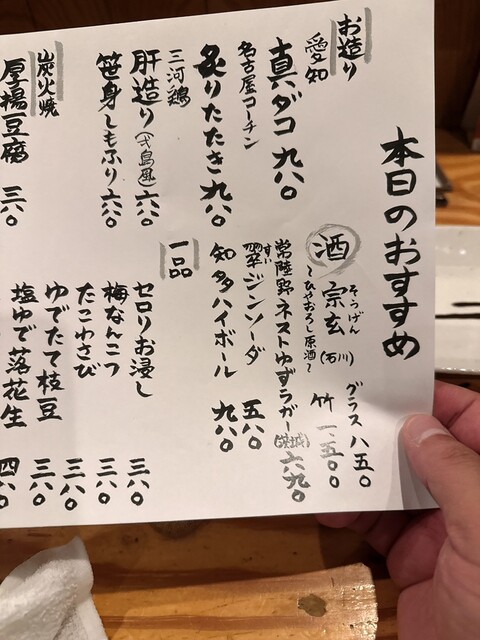 本日のおすすめ
お造り
愛知
真ダコ 九八〇
名古屋コーチン
炙りたたき 九八〇
三河鶏
肝造り(弌島風) 六八〇
笹身しもふり 六八〇
炭火焼
厚揚豆腐 三八〇
酒
そうげん
宗玄 (石川) グラス 八五〇
〜ひやおろし原酒〜 竹 一、五〇〇
常陸野ネストゆずラガー(茨城) 六九〇
すい
翠ジンソーダ 五八〇
知多ハイボール 九八〇
一品
セロリお浸し 三八〇
梅なんこつ 三八〇
たこわさび 三八〇
ゆでたて枝豆 三八〇
塩ゆで落花生 四八〇